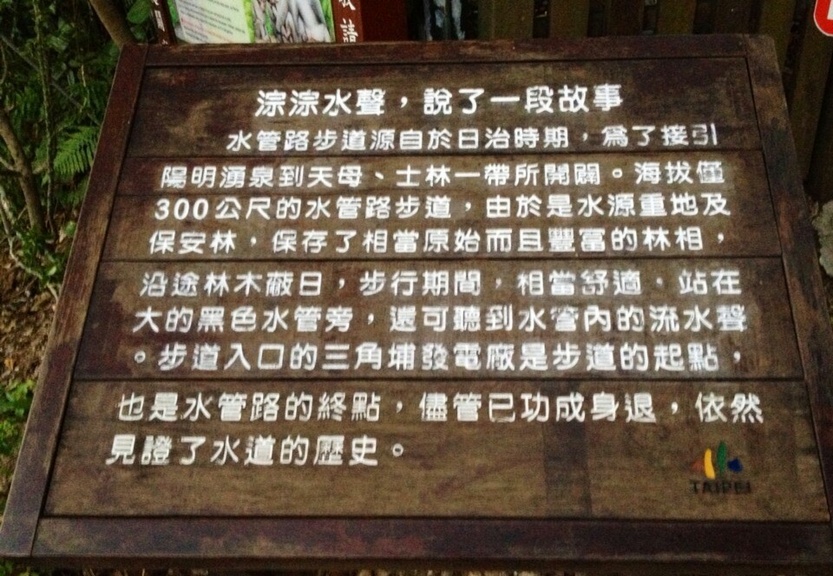 淙淙水聲，說了一段故事
水管路步道源自於日治時期，為了接引
陽明湧泉到天母、士林一帶所開闢。海拔僅
300公尺的水管路步道，由於是水源重地及
保安林，保存了相當原始而且豐富的林相，
沿途林木蔽日，步行期間，相當舒適。站在
大的黑色水管旁，還可聽到水管內的流水聲
。步道入口的三角埔發電廠是步道的起點，
也是水管路的終點，儘管已功成身退，依然
見證了水道的歷史。
TAIPEI